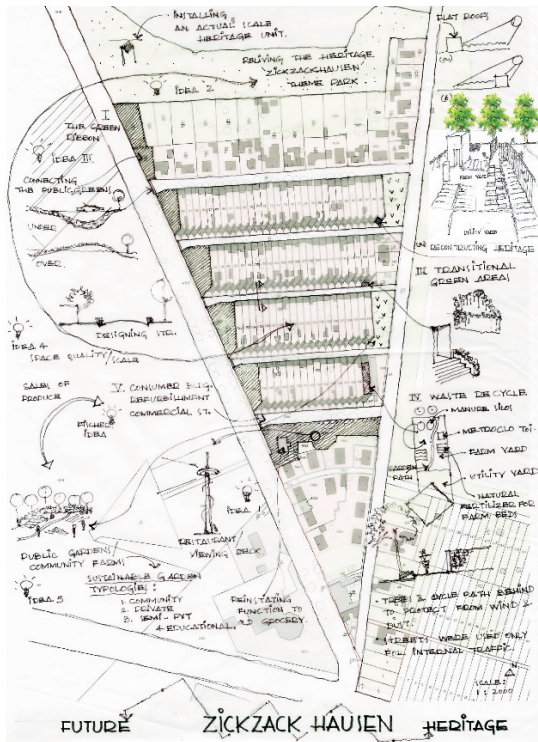 INSTALLING
AN ACTUAL SCALE
HERITAGE UNIT.
RELIVING THE HERITAGE
ZICKZACKHAUSEN
THEME PARK
IDEA 2
FLAT ROOFS
I.
THE GREEN
RIBBON
IDEA III
CONNECTING
THE PUBLIC GREENS
UNDER
OVER.
DESIGNING STR.
IDEA 4
SPACE QUALITY/SCALE
FARM YARD
UTILITY YARD
RECONTRUCTING HERITAGE
III. TRANSITIONAL
GREEN AREAS
SALES OF
PRODUCE
V. CONSUMER BLG.
REFURBISHMENT
COMMERCIAL ST.
IDEA
IV. WASTE RECYCLE
MANURE SILOS
METROCLO TOI-
FARM YARD
GARDEN
PATH
UTILITY YARD
NATURAL
FERTILIZER FOR
FARM BEDS
IDEA 1
RESTAURANT
VIEWING DECK.
PUBLIC GARDENS
COMMUNITY FARMS
SUSTAINABLE GARDEN
TYPOLOGIES:
IDEA 5
1. COMMUNITY
2. PRIVATE
3. SEMI-PVT
4. EDUCATIONAL
REINSTATING
FUNCTION TO
OLD GROCERY.
• TREES & CYCLE PATH BEHIND
TO PROTECT FROM WIND &
DUST.
• STREETS WERE USED ONLY
FOR INTERNAL TRAFFIC.
SCALE:
1:2000
FUTURE ZICKZACK HAUSEN HERITAGE